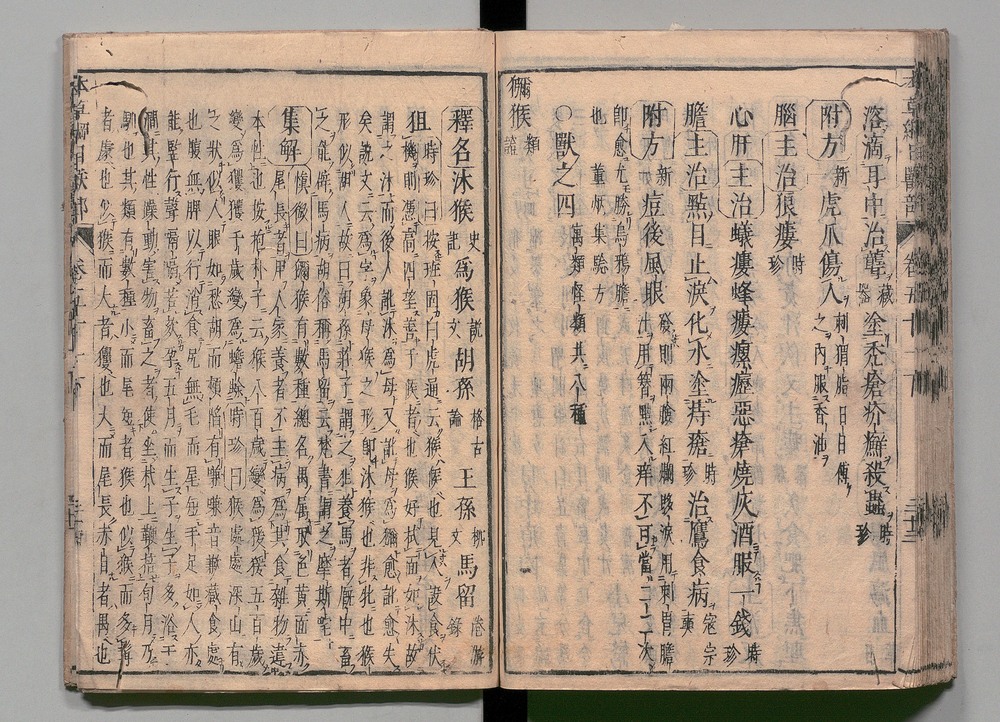 溶滴耳中治聾 藏器 塗禿瘡疥癬殺蟲 時珍
附方 新一 虎爪傷人 刺猬脂日日傅之内服香油
腦主治狼瘻 時珍
心肝主治蟻瘻蜂瘻瘰癧惡瘡燒灰酒服一錢 時珍
膽主治點目止淚化水塗痔瘡 時珍 治鷹食病 寇宗奭
附方 新一 痘後風眼 發則兩瞼紅爛眵淚用刺猬膽汁用簪點入痒不可當二三次
即愈尤勝烏鴉膽也 董炳集驗方
○獸之四 寓類怪類共八種
獼猴 類證
釋名沐猴 史記 為猴 說文 胡孫 格古論 王孫 柳文 馬留 倦游錄
狙 時珍曰按班固白虎通云猴候也見人設食伏
機則憑高四望善于候者也猴好拭面如沐故
謂之沐後人訛沐為母又訛母為獼愈訛愈失
矣說文云為字象母猴之形即沐猴也非牝也猴
形似胡人故曰胡孫莊子謂之狙養馬者厩中畜
之能辟馬病胡俗稱馬留云梵書謂之摩斯咤
集解 慎微曰獼猴有數種總名禺屬取色黄面赤
尾長者用人家養者不主病爲其食雜物違
本性也按抱朴子云猴八百歲變爲猨猨五百歲
變爲玃玃千歲變爲蟾蜍時珍曰猴處處深山有
之狀似人眼如愁胡而頰陷有嗛嗛音歉藏食處
也腹無脾以行消食尻無毛而尾短手足如人亦
能竪行聲嗝嗝若欬孕五月而生子生子多浴于
澗其性躁動害物畜之者使坐杙上鞭掊旬月乃
馴也其類有數種小而尾短者猴也似猴而多髯
者豦也似猴而大者玃也大而尾長赤目者禺也